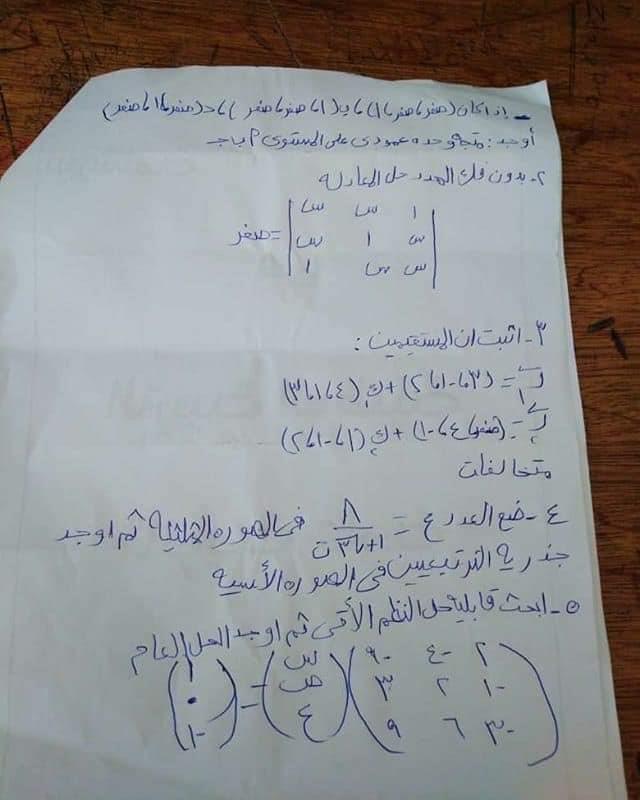 ١- إذا كان (صفر، صفر، ١) ، ب(١، صفر، صفر) ، جـ(صفر، ١، صفر)
أوجد: متجه وحده عمودى على المستوى ٩ ب جـ
٢- بدون فك المحدد حل المعادله
١ س س
س ١ س = صفر
س س ١
٣- اثبت ان المستقيمين:
ر١ = (٣، -١، ٢) + ك١ (٤، ١، ٣)
ر٢ = (صفر، ٤، -١) + ك٢ (١، -١، ٢)
متخالفان
٤- ضع العدد ع = ٨ / ١+√٣ ت فى الصوره المثلثيه ثم اوجد
جذريه التربيعيين فى الصوره الأسيه
٥- ابحث قابلية حل النظم الأتى ثم اوجد الحل العام
٢ -٤ -٩ س ١
-١ ٢ ٣ ص = ٠
-٣ ٦ ٩ ع -١